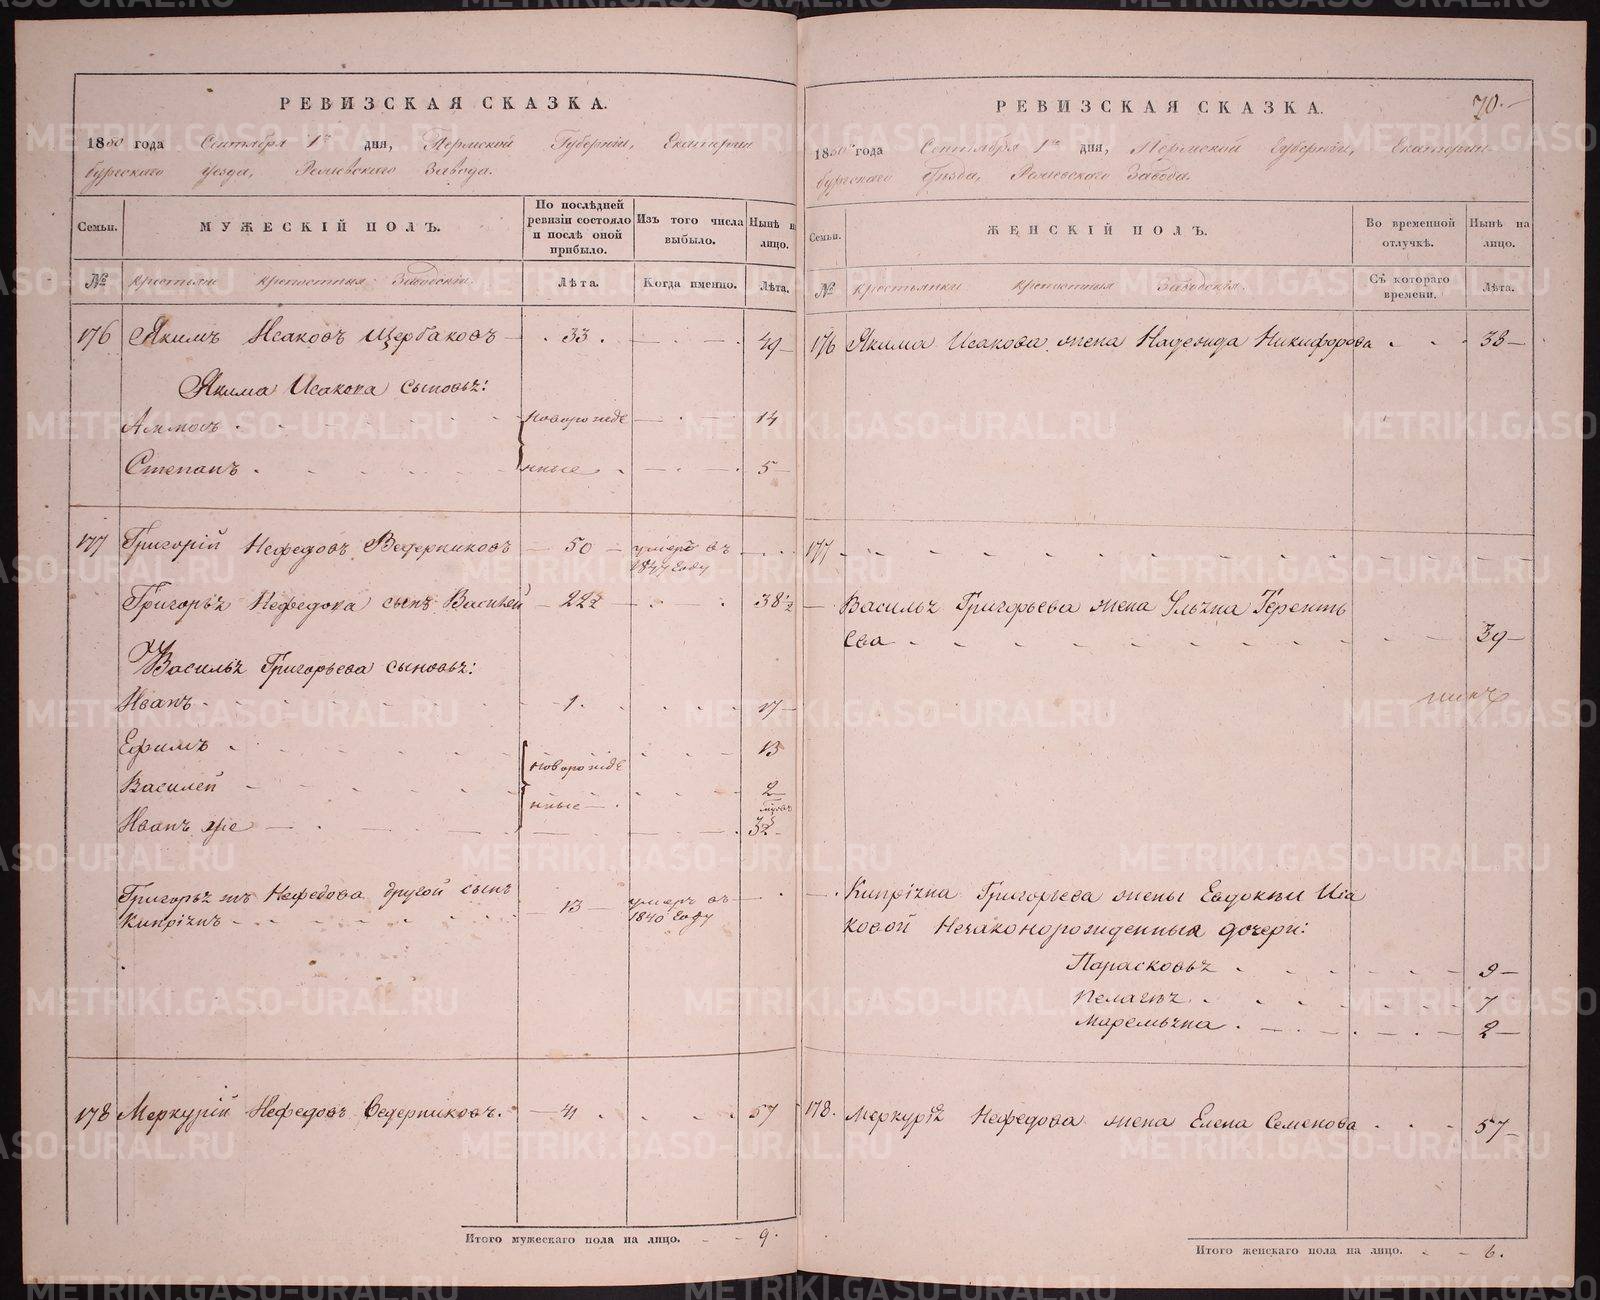 РЕВИЗСКАЯ СКАЗКА.
1850 года Сентября 1го дня, Пермской Губерніи, Екатерин
бургскаго уезда, Режевского Завода.
Семьи.
МУЖЕСКІЙ ПОЛЪ.
По послѣдней ревизіи состояло и послѣ оной прибыло.
Изъ того числа выбыло.
Нынѣ на лицо.
№
крестьяне крепостныя Заводскіи.
Лѣта.
Когда именно.
Лѣта.
176 Якимъ Исаковъ Щербаковъ 33. 49
Якима Исакова сыновьѣ:
Аммосъ новорожде 14
Степанъ нные 5
177 Григорій Нефедовъ Ведерниковъ 50 умеръ въ 1847 году
Григорьѣ Нефедова сынъ Василей 22½ 38½
Васильѣ Григорьева сыновьѣ:
Иванъ 1. 17
Ефимъ 13
новорожде
Василей 2
нные
Иванъ же
Григорьѣ тъ Нефедова другой сынъ
Кипріянъ 13 умеръ въ 1840 году
178 Меркурій Нефедовъ Ведерниковъ. 41 57
Итого мужескаго пола на лицо. 9.
РЕВИЗСКАЯ СКАЗКА.
70.
1850 года Сентября 1го дня, Пермской Губерніи, Екатерин
бургскаго Уезда, Режевскаго Завода.
Семьи.
ЖЕНСКІЙ ПОЛЪ.
Во временной отлучкѣ.
Нынѣ на лицо.
№
крестьянки крепостныя Заводскія.
Съ котораго времени.
Лѣта.
176 Якима Исакова жена Надежда Никифорова 38
177
Васильѣ Григорьева жена Ульяна Теренть
ева 39
Кипріяна Григорьева жены Евдокеи Иса
ковой Незаконорожденныя дочери:
Парасковьѣ 9
Пелагѣѣ 7
Маремьяна 2
178. Меркурѣѣ Нефедова жена Елена Семенова 57
Итого женскаго пола на лицо. 6.
METRIKI.GASO-URAL.RU